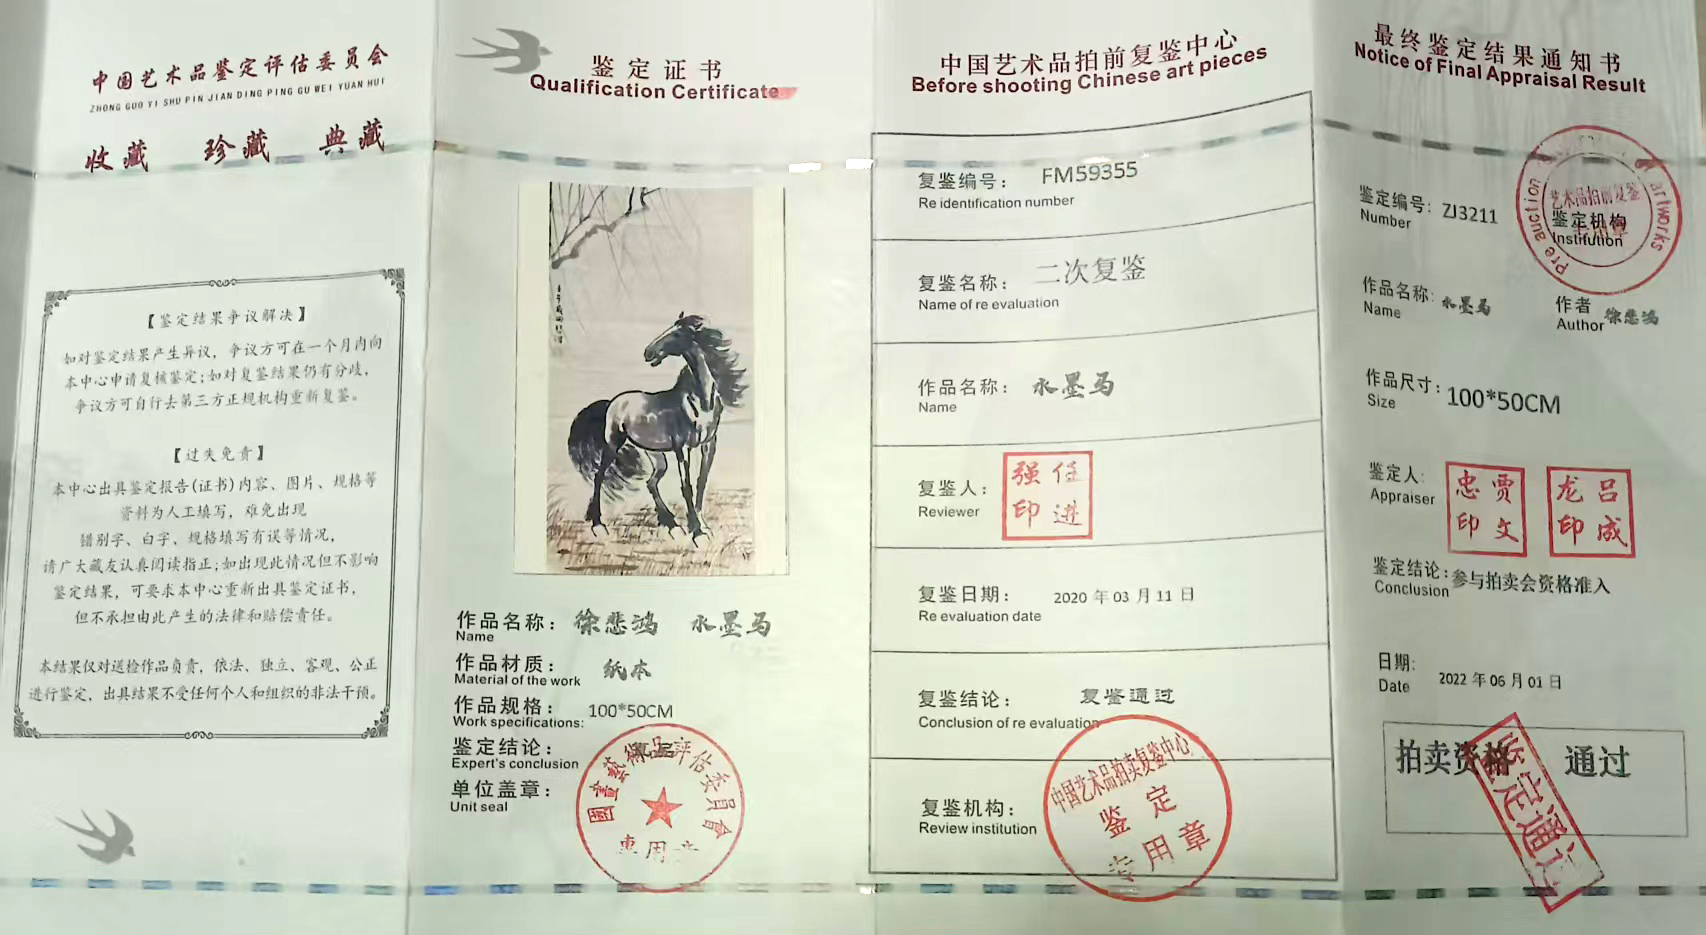 中国艺术品鉴定评估委员会
ZHONG GUO YI SHU PIN JIAN DING PING GU WEI YUAN HUI
收藏 珍藏 典藏
【鉴定结果争议解决】
如对鉴定结果产生异议，争议方可在一个月内向
本中心申请复核鉴定;如对复鉴结果仍有分歧，
争议方可自行去第三方正规机构重新复鉴。
【过失免责】
本中心出具鉴定报告(证书)内容、图片、规格等
资料为人工填写，难免出现
错别字、白字、规格填写有误等情况，
请广大藏友认真阅读指正;如出现此情况但不影响
鉴定结果，可要求本中心重新出具鉴定证书，
但不承担由此产生的法律和赔偿责任。
本结果仅对送检作品负责，依法、独立、客观、公正
进行鉴定，出具结果不受任何个人和组织的非法干预。
鉴定证书
Qualification Certificate
作品名称： 徐悲鸿 水墨马
Name
作品材质： 纸本
Material of the work
作品规格： 100*50CM
Work specifications:
鉴定结论：
Expert's conclusion
单位盖章：
Unit seal
專用章
中国艺术品拍前复鉴中心
Before shooting Chinese art pieces
复鉴编号： FM59355
Re identification number
复鉴名称： 二次复鉴
Name of re evaluation
作品名称： 水墨马
Name
复鉴人： 任进强印
Reviewer
复鉴日期： 2020 年 03 月 11 日
Re evaluation date
复鉴结论： 复鉴通过
Conclusion of re evaluation
复鉴机构：
Review institution
中国艺术品拍卖复鉴中心
鉴定
专用章
最终鉴定结果通知书
Notice of Final Appraisal Result
鉴定编号: ZJ3211
Number
鉴定机构
Institution
Pre auction artworks
艺术品拍前复鉴
作品名称: 水墨马
Name
作者 徐悲鸿
Author
作品尺寸: 100*50CM
Size
鉴定人: 贾文忠印 吕成龙印
Appraiser
鉴定结论: 参与拍卖会资格准入
Conclusion
日期: 2022 年 06 月 01 日
Date
拍卖资格 通过
鉴定通过